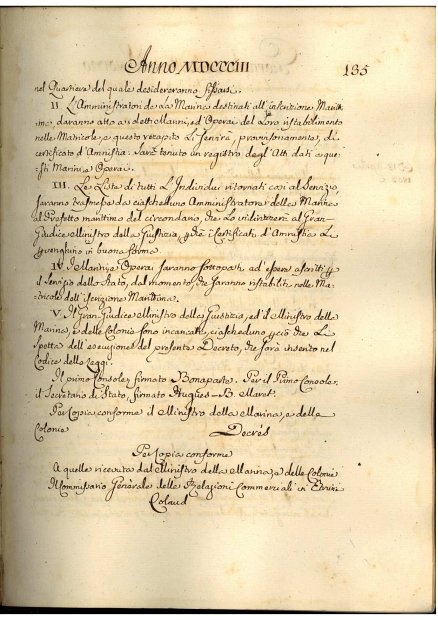 Anno MDCCCIII 135
nel Quartiere del quale desidereranno fissarsi.
II. L'Amministratori della Marina destinati all'inscrizione Marit-
ima, daranno atto a detti Marini, ed Operai del Loro ristabilimento
nelle Matricole, e questo recapito Li servirà, provvisionamente, di
certificato d'Amnistia. Sarà tenuto un registro degl'Atti dati a que-
sti Marini e Operai.
III. Le Liste di tutti L'Individui ritornati così al Servizio,
saranno trasmesse da ciascheduno Amministratore della Marina
al Prefetto marittimo del circondario, che Le indirizzerà al Gran
Giudice Ministro della Giustizia, i certificati d'Amnistia Li
in buona forma.
IV. I Marini, e Operai saranno sottoposti ad essere ascritti
il Servizio dello Stato, dal momento, che saranno ristabiliti nelle Ma-
tricole dell'Iscrizione Marittima.
V. Il Gran Giudice Ministro della Giustizia, ed il Ministro della
Marina, e delle Colonie sono incaricati, ciascheduno ciò che Li
spetta dell'esecuzione del presente Decreto, che sarà inserito nel
Codice delle Leggi.
Il primo Console, firmato Bonaparte. Per il Primo Console:
il Secretario di Stato, firmato Hugues-B. Maret.
Per Copia conforme il Ministro della Marina, e delle
Colonie
Decrès
Per Copia conforme
A quella ricevuta dal Ministro della Marina, e delle Colonie
Il Commissario Generale delle Relazioni Commerciali in
Colaud